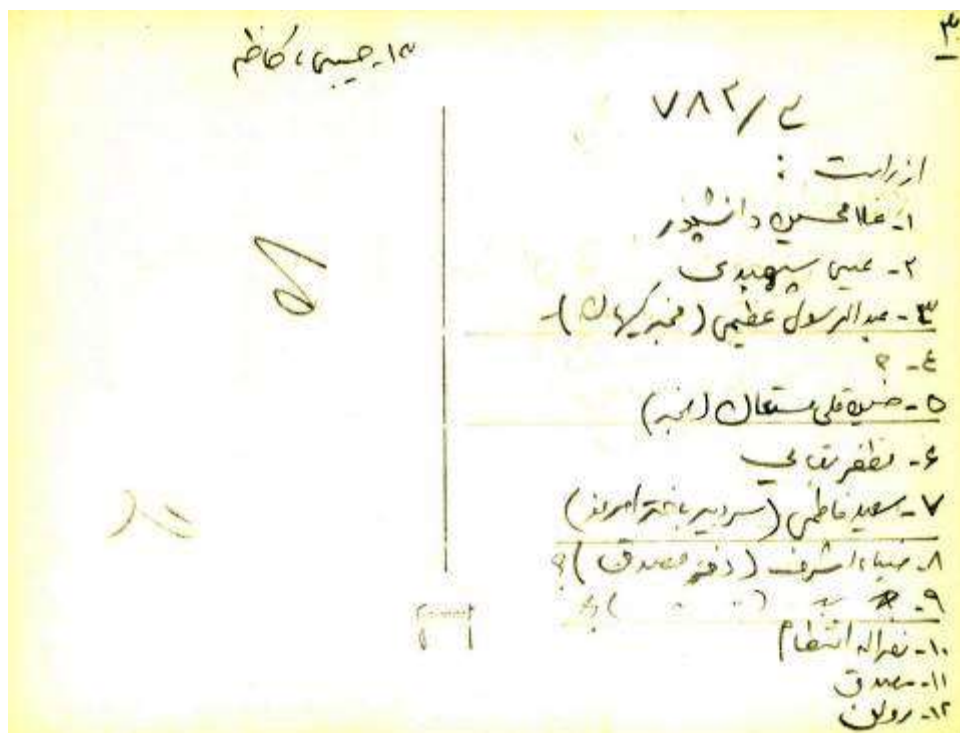 ۳
۷۸۲/ع
از راست :
۱- غلامحسین دانشپور
۲- عیسی سپهبدی
۳- عبدالرسول عظیمی (مخبر کیهان) -
۴- ؟
۵- حسینقلی مستعان (مخبر)
۶- مظفر بقایی
۷- سعید فاطمی (سردبیر باختر امروز)
۸- ضیاء اشرف (دفتر مصدق) ؟
۹-
۱۰- نصراله انتظام
۱۱- مصدق
۱۲- روئن
۱۳- حسیبی، کاظم